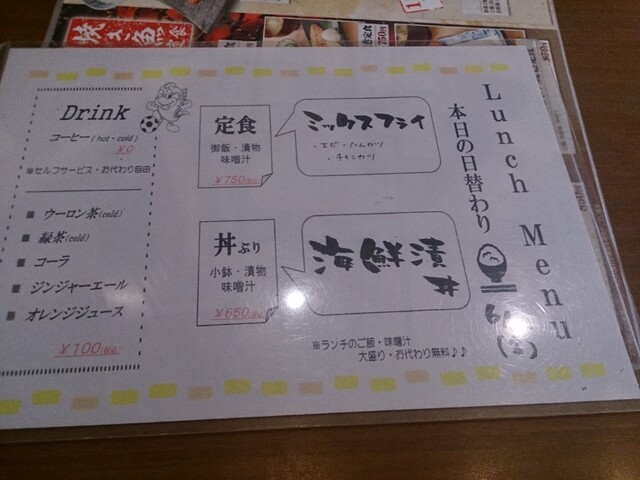 焼き魚
定食
Lunch Menu
本日の日替わり
定食
御飯・漬物
味噌汁
¥750(税込)
ミックスフライ
・エビ・たんカツ
・チキンカツ
丼ぶり
小鉢・漬物
味噌汁
¥650(税込)
海鮮漬
丼
※ランチのご飯・味噌汁
大盛り・お代わり無料♪♪
Drink
コーヒー(hot・cold)
¥0
※セルフサービス・お代わり自由
■ ウーロン茶(cold)
■ 緑茶(cold)
■ コーラ
■ ジンジャーエール
■ オレンジジュース
¥100(税込)